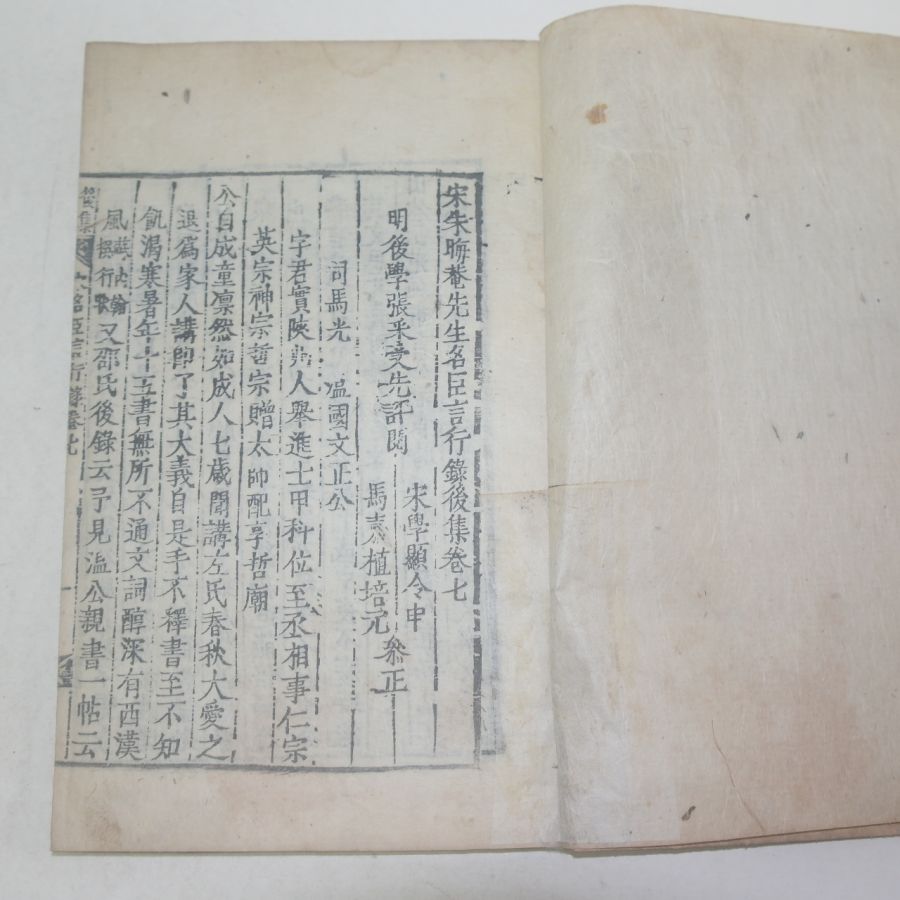 宋朱晦菴先生名臣言行錄後集卷七
明後學張采受先評閱
宋學顯令申
馬嘉植培元
叅正
司馬光 溫國文正公
字君實陝州人舉進士甲科位至丞相事仁宗
英宗神宗哲宗贈太師配享哲廟
公自成童凛然如成人七歲聞講左氏春秋大愛之
退爲家人講即了其大義自是手不釋書至不知
飢渴寒暑年十五書無所不通文詞醇深有西漢
風 行 又邵氏後錄云予見溫公親書一帖云
後集 名臣言行錄卷七 一